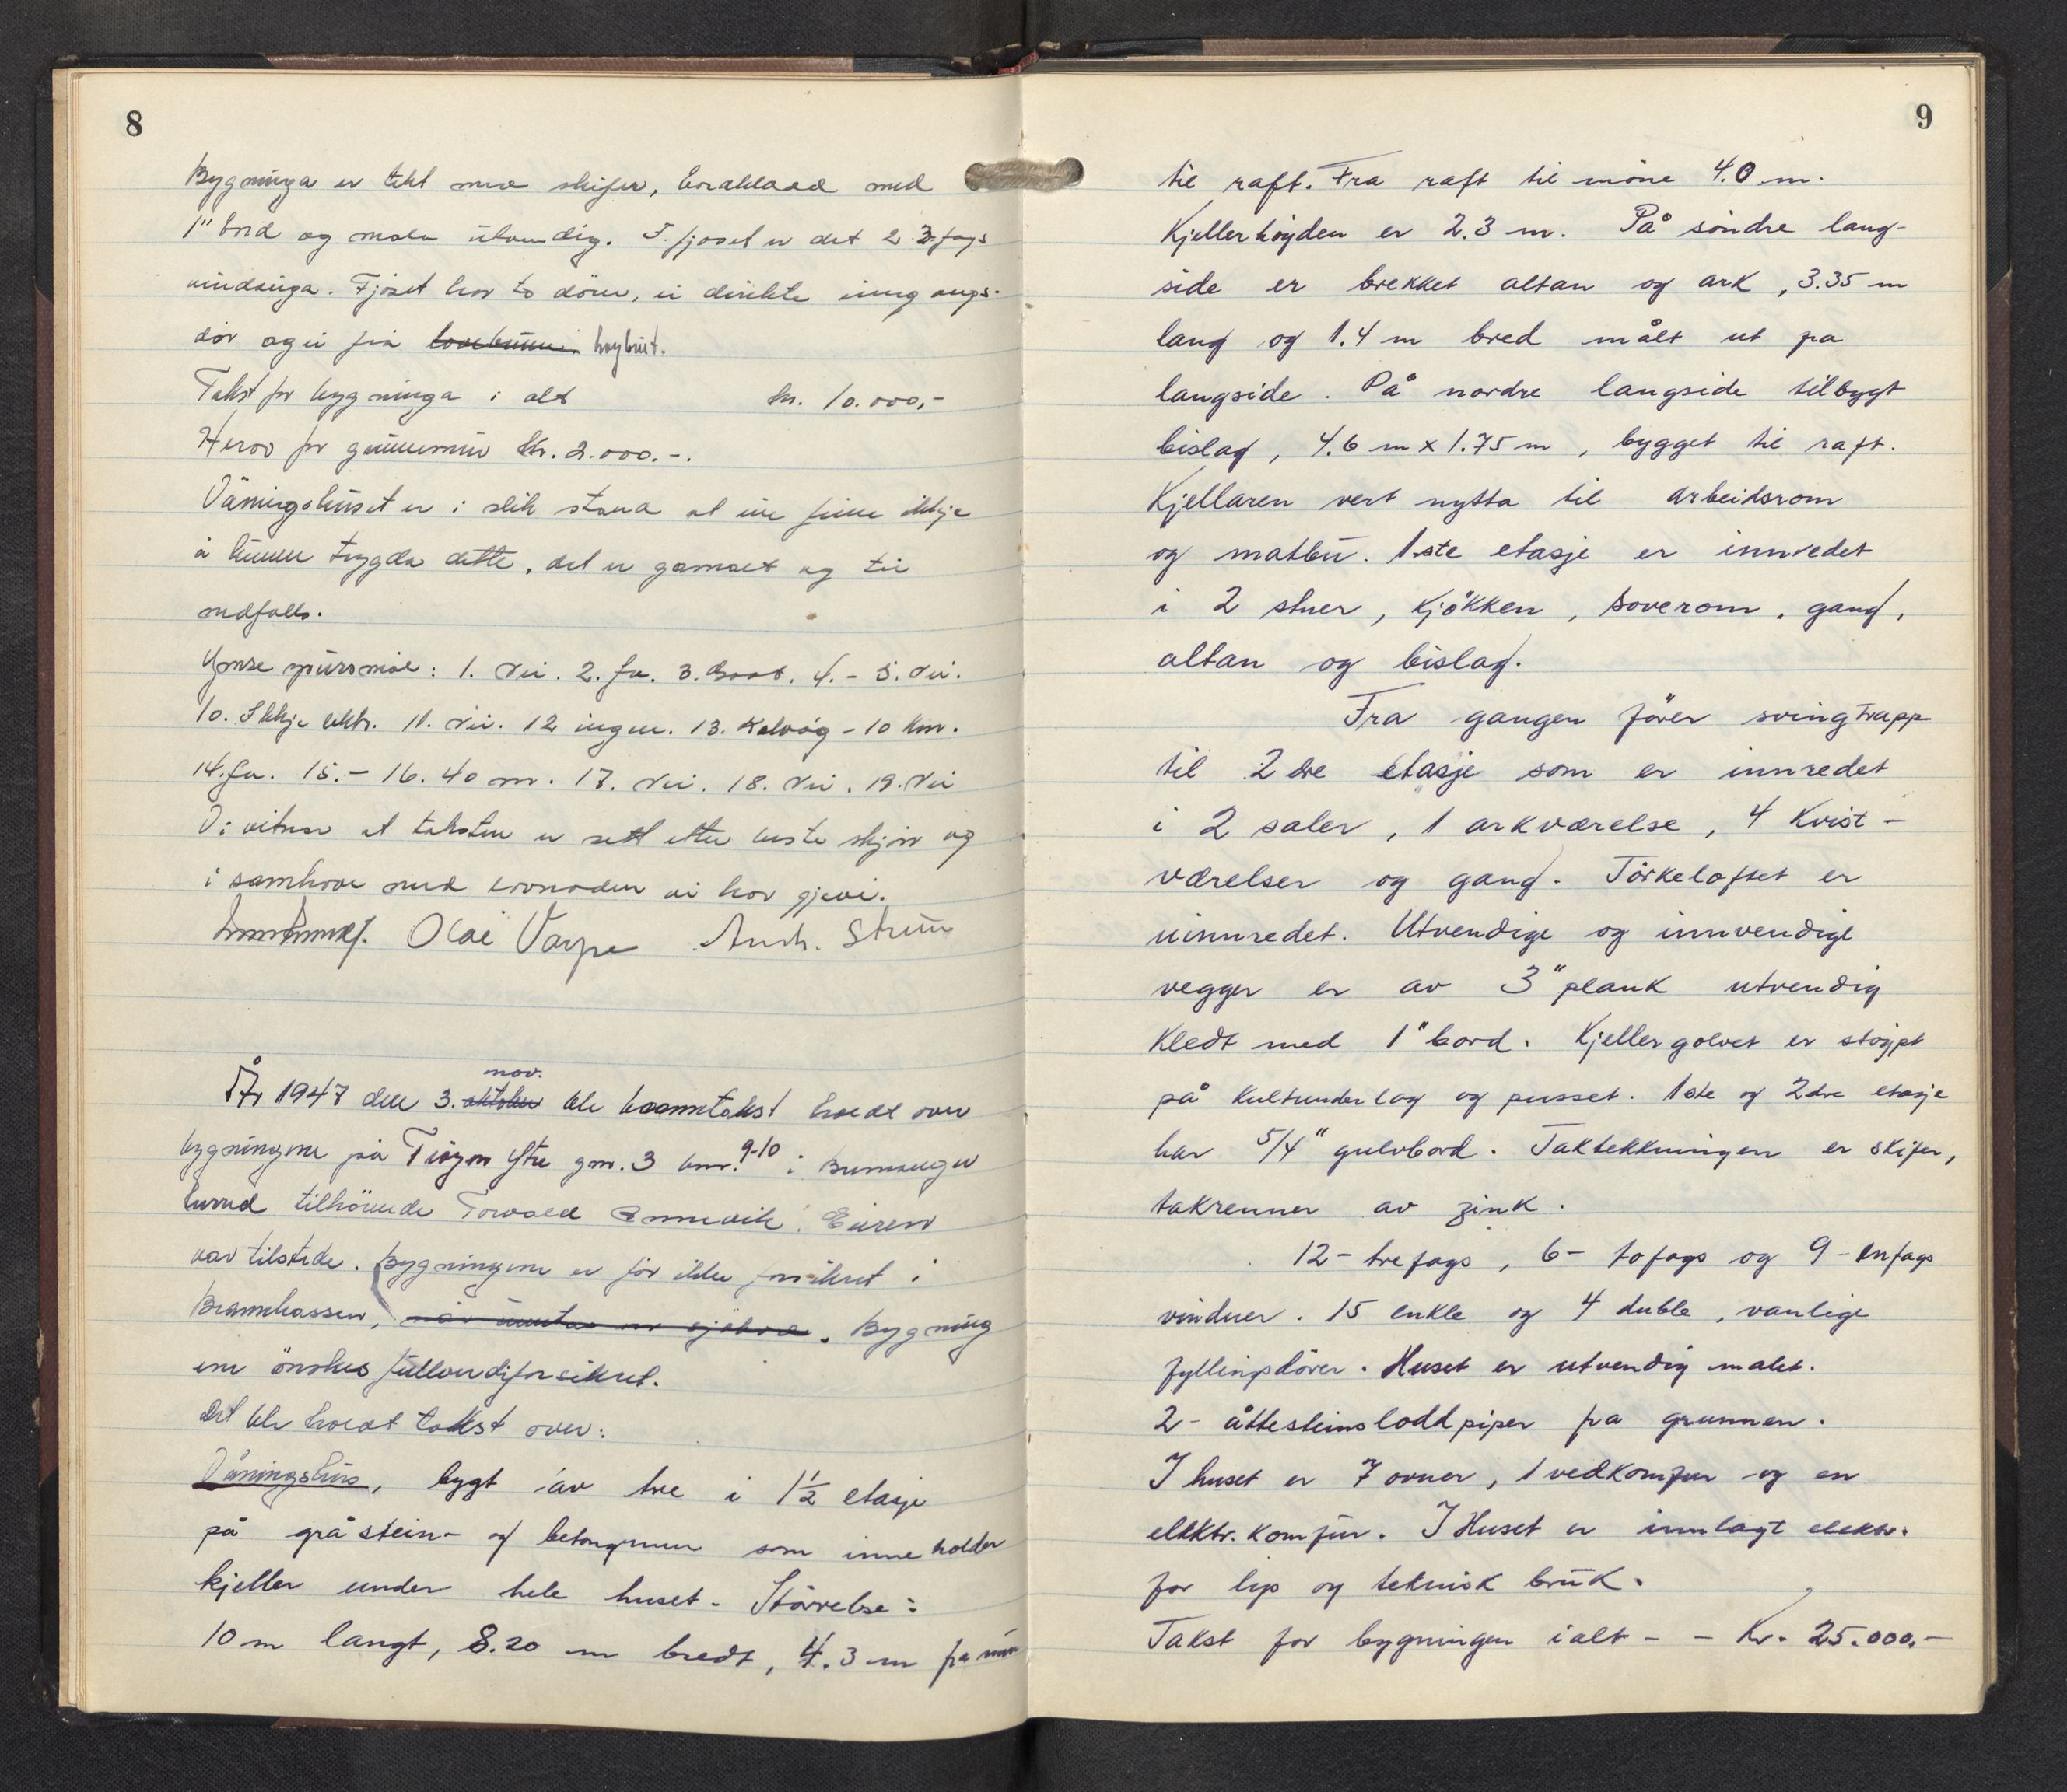 8
Bygninga er tekt med skifer, bordkledd med
1" bord og malt utvendig. I fjøset er det 2 3-fags
vindauga. Fjøset har to dörer, ei direkte inngangs-
dör og ei frå høybrit.
Takst for bygninga i alt kr. 10.000,-
Herav for grunnmur kr. 2.000.-.
Våningshuset er i slik stand at ein finn ikkje
å kunne trygda dette, det er gamalt og til
nedfalls.
Ymse spursmål: 1. Nei. 2. Ja. 3. 4. - 5. Nei.
10. Ikkje elektr. 11. Nei. 12 ingen. 13. Kalvåg - 10 km.
14. Ja. 15. - 16. 40 m. 17. Nei. 18. Nei. 19. Nei
Vi vitner at taksten er sett etter beste skjön og
i samhøve med lovnaden vi har gjeve.
Olai Varpe Andr. Strøm
År 1947 den 3. oktober nov. ble branntakst holdt over
bygningene på ytre gnr. 3 bnr. 9-10 i Bremanger
herred tilhörende Eieren
var tilstede. Bygningene er før ikke forsikret i
Brannkassen, Bygning
ene önskes fullverdiforsikret.
Det ble holdt takst over:
Våningshus, bygt av tre i 1½ etasje
på gråstein- og betongmur som inneholder
kjeller under hele huset. Störrelse:
10 m langt, 8.20 m bredt, 4.3 m fra mur
9
til raft. Fra raft til möne 4.0 m.
Kjellerhöyden er 2.3 m. På söndre lang-
side er brekket altan og ark, 3.35 m
lang og 1.4 m bred målt ut på
langside. På nordre langside tilbygt
bislag, 4.6 m x 1.75 m, bygget til raft.
Kjellaren vert nytta til arbeidsrom
og matbu. 1.ste etasje er innredet
i 2 stuer, kjökken, soverom, gang,
altan og bislag.
Fra gangen förer svingtrapp
til 2dre etasje som er innredet
i 2 saler, 1 arkværelse, 4 kvist-
værelser og gang. Törkeloftet er
uinnredet. Utvendige og innvendige
vegger er av 3" plank utvendig
kledt med 1" bord. Kjellergolvet er stöypt
på kultunderlag og pusset. 1ste og 2dre etasje
har 5/4" gulvbord. Taktekkningen er skifer,
takrenner av zink.
12- trefags, 6- tofags og 9- enfags
vinduer. 15 enkle og 4 duble, vanlige
fyllingsdörer. Huset er utvendig malet.
2- åttesteinsloddpiper fra grunnen.
I huset er 7 ovner, 1 vedkomfur og en
elektr. komfur. I Huset er innlagt elektr.
for lys og teknisk bruk.
Takst for bygningen ialt - - Kr. 25.000,-